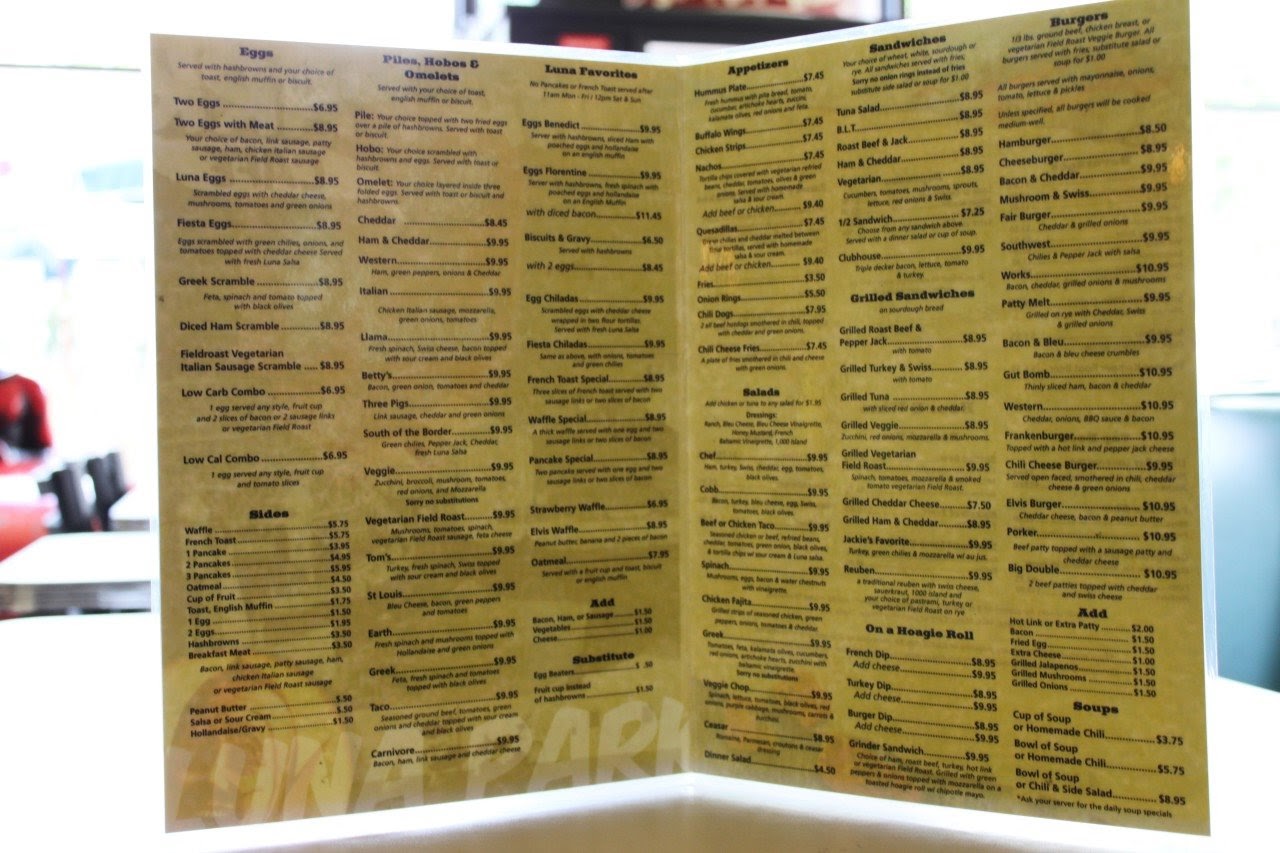 Eggs
Served with hashbrowns and your choice of
toast, english muffin or biscuit.
Two Eggs ........................$6.95
Two Eggs with Meat ...........$8.95
Your choice of bacon, link sausage, patty
sausage, ham, chicken italian sausage
or vegetarian Field Roast sausage
Luna Eggs ........................$8.95
Scrambled eggs with cheddar cheese,
mushrooms, tomatoes and green onions
Fiesta Eggs........................$8.95
Eggs scrambled with green chilies, onions, and
tomatoes topped with cheddar cheese Served
with fresh Luna Salsa
Greek Scramble ................$8.95
Feta, spinach and tomato topped
with black olives
Diced Ham Scramble ..........$8.95
Fieldroast Vegetarian
Italian Sausage Scramble .... $8.95
Low Carb Combo ...............$6.95
1 egg served any style, fruit cup
and 2 slices of bacon or 2 sausage links
or vegetarian Field Roast
Low Cal Combo .................$6.95
1 egg served any style, fruit cup
and tomato slices
Sides
Waffle ........................$5.75
French Toast ........................$5.75
1 Pancake ........................$3.95
2 Pancakes ........................$4.95
3 Pancakes ........................$5.95
Oatmeal ........................$4.50
Cup of Fruit ........................$3.50
Toast, English Muffin ...............$1.75
1 Egg ........................$1.50
2 Eggs ........................$1.95
Hashbrowns ........................$3.50
Breakfast Meat ........................$3.50
Bacon, link sausage, patty sausage, ham,
chicken Italian sausage
or vegetarian Field Roast sausage
Peanut Butter ........................$.50
Salsa or Sour Cream ...............$.50
Hollandaise/Gravy ...............$1.50
Piles, Hobos &
Omelets
Served with your choice of toast,
english muffin or biscuit.
Pile: Your choice topped with two fried eggs
over a pile of hashbrowns. Served with toast
or biscuit.
Hobo: Your choice scrambled with
hashbrowns and eggs. Served with toast or
biscuit.
Omelet: Your choice layered inside three
folded eggs. Served with toast or biscuit and
hashbrowns.
Cheddar ........................$8.45
Ham & Cheddar...............$9.95
Western........................$9.95
Ham, green peppers, onions & Cheddar
Italian ........................$9.95
Chicken Italian sausage, mozzarella,
green onions, tomatoes
Llama........................$9.95
Fresh spinach, Swiss cheese, bacon topped
with sour cream and black olives
Betty's........................$9.95
Bacon, green onion, tomatoes and cheddar
Three Pigs........................$9.95
Link sausage, cheddar and green onions
South of the Border...............$9.95
Green chilies, Pepper Jack, Cheddar,
fresh Luna Salsa
Veggie........................$9.95
Zucchini, broccoli, mushroom, tomatoes,
red onions, and Mozzarella
Sorry no substitutions
Vegetarian Field Roast.........$9.95
Mushrooms, tomatoes, spinach,
vegetarian Field Roast sausage, feta cheese
Tom's........................$9.95
Turkey, fresh spinach, Swiss topped
with sour cream and black olives
St Louis........................$9.95
Bleu Cheese, bacon, green peppers
and tomatoes
Earth........................$9.95
Spinach and mushrooms topped with
Hollandaise and green onions
Greek........................$9.95
Feta, fresh spinach and tomatoes
topped with black olives
Taco........................$9.95
Seasoned ground beef, tomatoes, green
onions and cheddar topped with sour cream
and black olives
Carnivore........................$9.95
Bacon, ham, link sausage and cheddar cheese
Luna Favorites
No Pancakes or French Toast served after
11am Mon - Fri / 12pm Sat & Sun
Eggs Benedict ...............$9.95
Server with hashbrowns, sliced Ham with
poached eggs and hollandaise
on an english muffin
Eggs Florentine ...............$9.95
Server with hashbrowns, fresh spinach with
poached eggs and hollandaise
on an English Muffin
with diced bacon...............$11.45
Biscuits & Gravy...............$6.50
Served with hashbrowns
with 2 eggs...............$8.45
Egg Chiladas ...............$9.95
Scrambled eggs with cheddar cheese
wrapped in two flour tortillas.
Served with fresh Luna Salsa
Fiesta Chiladas...............$9.95
Same as above, with onions, tomatoes
and green chilies
French Toast Special...............$8.95
Three slices of french toast served with two
sausage links or two slices of bacon
Waffle Special...............$8.95
A thick waffle served with one egg and two
sausage links or two slices of bacon
Pancake Special...............$8.95
Two pancake served with one egg and two
sausage links or two slices of bacon
Strawberry Waffle...............$6.95
Elvis Waffle...............$8.95
Peanut butter, banana and 2 pieces of bacon
Oatmeal...............$7.95
Served with a fruit cup and toast, biscuit
or english muffin
Add
Bacon, Ham, or Sausage ......$1.50
Vegetables ...............$1.50
Cheese ...............$1.00
Substitute
Egg Beaters...............$ .50
Fruit cup instead
of hashbrowns ...............$1.50
Appetizers
Hummus Plate...............$7.45
Fresh hummus with pita bread, tomato,
cucumber, artichoke hearts, zuccini,
kalamate olives, red onions and feta.
Buffalo Wings ...............$7.45
Chicken Strips ...............$7.45
Nachos ...............$7.45
Tortilla chips covered with vegetarian refried
beans, cheddar, tomatoes, olives & green
onions. Served with homemade
salsa & sour cream.
Add beef or chicken......$9.40
Quesadillas...............$7.45
chilies and cheddar melted between
flour tortillas, served with homemade
salsa & sour cream.
Add beef or chicken......$9.40
Fries...............$3.50
Onion Rings...............$5.50
Chili Dogs...............$7.95
2 all beef hotdogs smothered in chili, topped
with cheddar and green onions.
Chili Cheese Fries...............$7.45
A plate of fries smothered in chili and cheese
with green onions.
Salads
Add chicken or tuna to any salad for $1.95
Dressings:
Ranch, Bleu Cheese, Bleu Cheese Vinaigrette,
Honey Mustard, French
Balsamic Vinaigrette, 1,000 Island
Chef...............$9.95
Ham, turkey, Swiss, cheddar, egg, tomatoes,
black olives.
Cobb...............$9.95
Bacon, turkey, bleu cheese, egg, Swiss,
tomatoes, black olives.
Beef or Chicken Taco............$9.95
Seasoned chicken or beef, refried beans,
cheddar, tomatoes, green onion, black olives
& tortilla chips w/ sour cream & Luna salsa.
Spinach...............$9.95
Mushrooms, eggs, bacon & water chestnuts
with vinaigrette.
Chicken Fajita...............$9.95
Grilled strips of seasoned chicken, green
peppers, onions, tomatoes & cheddar.
Greek...............$9.95
Tomatoes, feta, kalamata olives, cucumbers,
red onions, artichoke hearts, zucchini with
balsamic vinaigrette.
Sorry no substitutions
Veggie Chop...............$9.95
Spinach, lettuce, tomatoes, black olives, red
onions, purple cabbage, mushrooms, carrots &
zucchini.
Ceasar...............$8.95
Romaine, Parmesan, croutons & ceasar
dressing
Dinner Salad...............$4.50
Sandwiches
Your choice of wheat, white, sourdough or
rye. All sandwiches served with fries;
Sorry no onion rings instead of fries
substitute side salad or soup for $1.00
Tuna Salad...............$8.95
B.L.T...............$8.95
Roast Beef & Jack...............$8.95
Ham & Cheddar...............$8.95
Vegetarian ...............$8.95
Cucumbers, tomatoes, mushrooms, sprouts,
lettuce, red onions & Swiss.
1/2 Sandwich...............$7.25
Choose from any sandwich above.
Served with a dinner salad or cup of soup.
Clubhouse...............$9.95
Triple decker bacon, lettuce, tomato
& turkey.
Grilled Sandwiches
on sourdough bread
Grilled Roast Beef &
Pepper Jack...............$8.95
with tomato
Grilled Turkey & Swiss.........$8.95
with tomato
Grilled Tuna ...............$8.95
with sliced red onion & cheddar.
Grilled Veggie...............$8.95
Zucchini, red onions, mozzarella & mushrooms.
Grilled Vegetarian
Field Roast...............$9.95
Spinach, tomatoes, mozzarella & smoked
tomato vegetarian Field Roast.
Grilled Cheddar Cheese......$7.50
Grilled Ham & Cheddar......$8.95
Jackie's Favorite...............$9.95
Turkey, green chilies & mozzarella w/ au jus.
Reuben...............$9.95
a traditional reuben with swiss cheese,
sauerkraut, 1000 island and
your choice of pastrami, turkey or
vegetarian Field Roast on rye
On a Hoagie Roll
French Dip...............$8.95
Add cheese...............$9.95
Turkey Dip...............$8.95
Add cheese...............$9.95
Burger Dip...............$8.95
Add cheese...............$9.95
Grinder Sandwich...............$9.95
Choice of ham, roast beef, turkey, hot link
or vegetarian Field Roast. Grilled with green
peppers & onions topped with mozzarella on a
toasted hoagie roll w/ chipotle mayo.
Burgers
1/3 lbs. ground beef, chicken breast, or
vegetarian Field Roast Veggie Burger. All
burgers served with fries, substitute salad or
soup for $1.00
All burgers served with mayonnaise, onions,
tomato, lettuce & pickles
Unless specified, all burgers will be cooked
medium-well.
Hamburger...............$8.50
Cheeseburger...............$8.95
Bacon & Cheddar...............$9.95
Mushroom & Swiss...............$9.95
Fair Burger...............$9.95
Cheddar & grilled onions
Southwest...............$9.95
Chilies & Pepper Jack with salsa
Works...............$10.95
Bacon, cheddar, grilled onions & mushrooms
Patty Melt...............$9.95
Grilled on rye with Cheddar, Swiss
& grilled onions
Bacon & Bleu...............$9.95
Bacon & bleu cheese crumbles
Gut Bomb...............$10.95
Thinly sliced ham, bacon & cheddar
Western...............$10.95
Cheddar, onions, BBQ sauce & bacon
Frankenburger...............$10.95
Topped with a hot link and pepper jack cheese
Chili Cheese Burger............$9.95
Served open faced, smothered in chili, cheddar
cheese & green onions
Elvis Burger...............$10.95
Cheddar cheese, bacon & peanut butter
Porker...............$10.95
Beef patty topped with a sausage patty and
cheddar cheese
Big Double...............$10.95
2 beef patties topped with cheddar
and swiss cheese
Add
Hot Link or Extra Patty ...... $2.00
Bacon ...............$1.50
Fried Egg ...............$1.50
Extra Cheese ...............$1.00
Grilled Jalapenos...............$1.50
Grilled Mushrooms ...............$1.50
Grilled Onions ...............$1.50
Soups
Cup of Soup
or Homemade Chili...............$3.75
Bowl of Soup
or Homemade Chili...............$5.75
Bowl of Soup
or Chili & Side Salad...............$8.95
*Ask your server for the daily soup specials
LUNA PARK